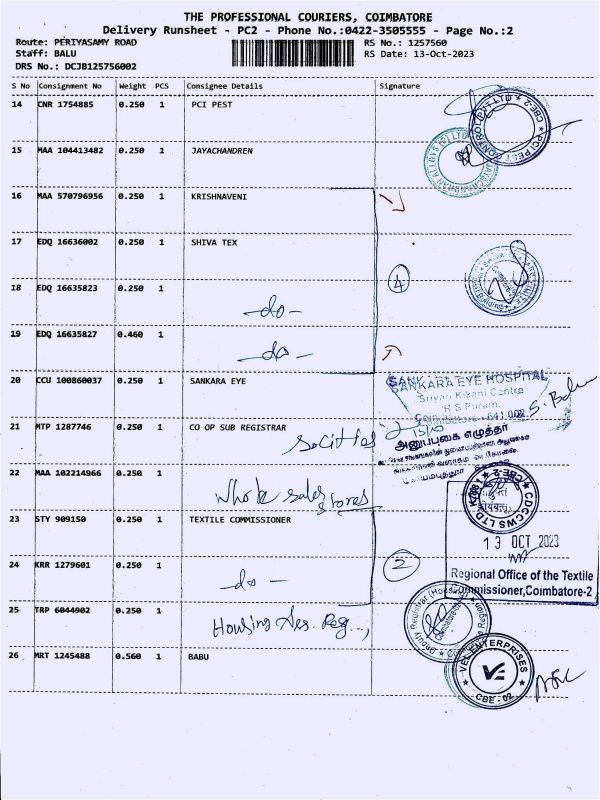 THE PROFESSIONAL COURIERS, COIMBATORE
Delivery Runsheet - PC2 - Phone No.:0422-3505555 - Page No.:2
Route: PERIYASAMY ROAD
RS No.: 1257560
Staff: BALU
RS Date: 13-Oct-2023
DRS No.: DCJB125756002
S No Consignment No Weight PCS Consignee Details Signature
14 CNR 1754885 0.250 1 PCI PEST
15 MAA 104413482 0.250 1 JAYACHANDREN
16 MAA 570796956 0.250 1 KRISHNAVENI
17 EDQ 16636002 0.250 1 SHIVA TEX
4
18 EDQ 16635823 0.250 1
-do-
19 EDQ 16635827 0.460 1
-do-
20 CCU 100860037 0.250 1 SANKARA EYE
SANKARA EYE HOSPITAL
R S Puram,
21 MTP 1287746 0.250 1 CO OP SUB REGISTRAR
அனுப்புகை எழுத்தர்
22 MAA 102214966 0.250 1
Whole sales
stores
CDCCWS LTD CBE-2
23 STY 909150 0.250 1 TEXTILE COMMISSIONER
13 OCT 2023
24 KRR 1279601 0.250 1
-do-
2
Regional Office of the Textile
Commissioner,Coimbatore-2
25 TRP 6044902 0.250 1
Housing
26 MRT 1245488 0.560 1 BABU
VEL ENTERPRISES
CBE - 02